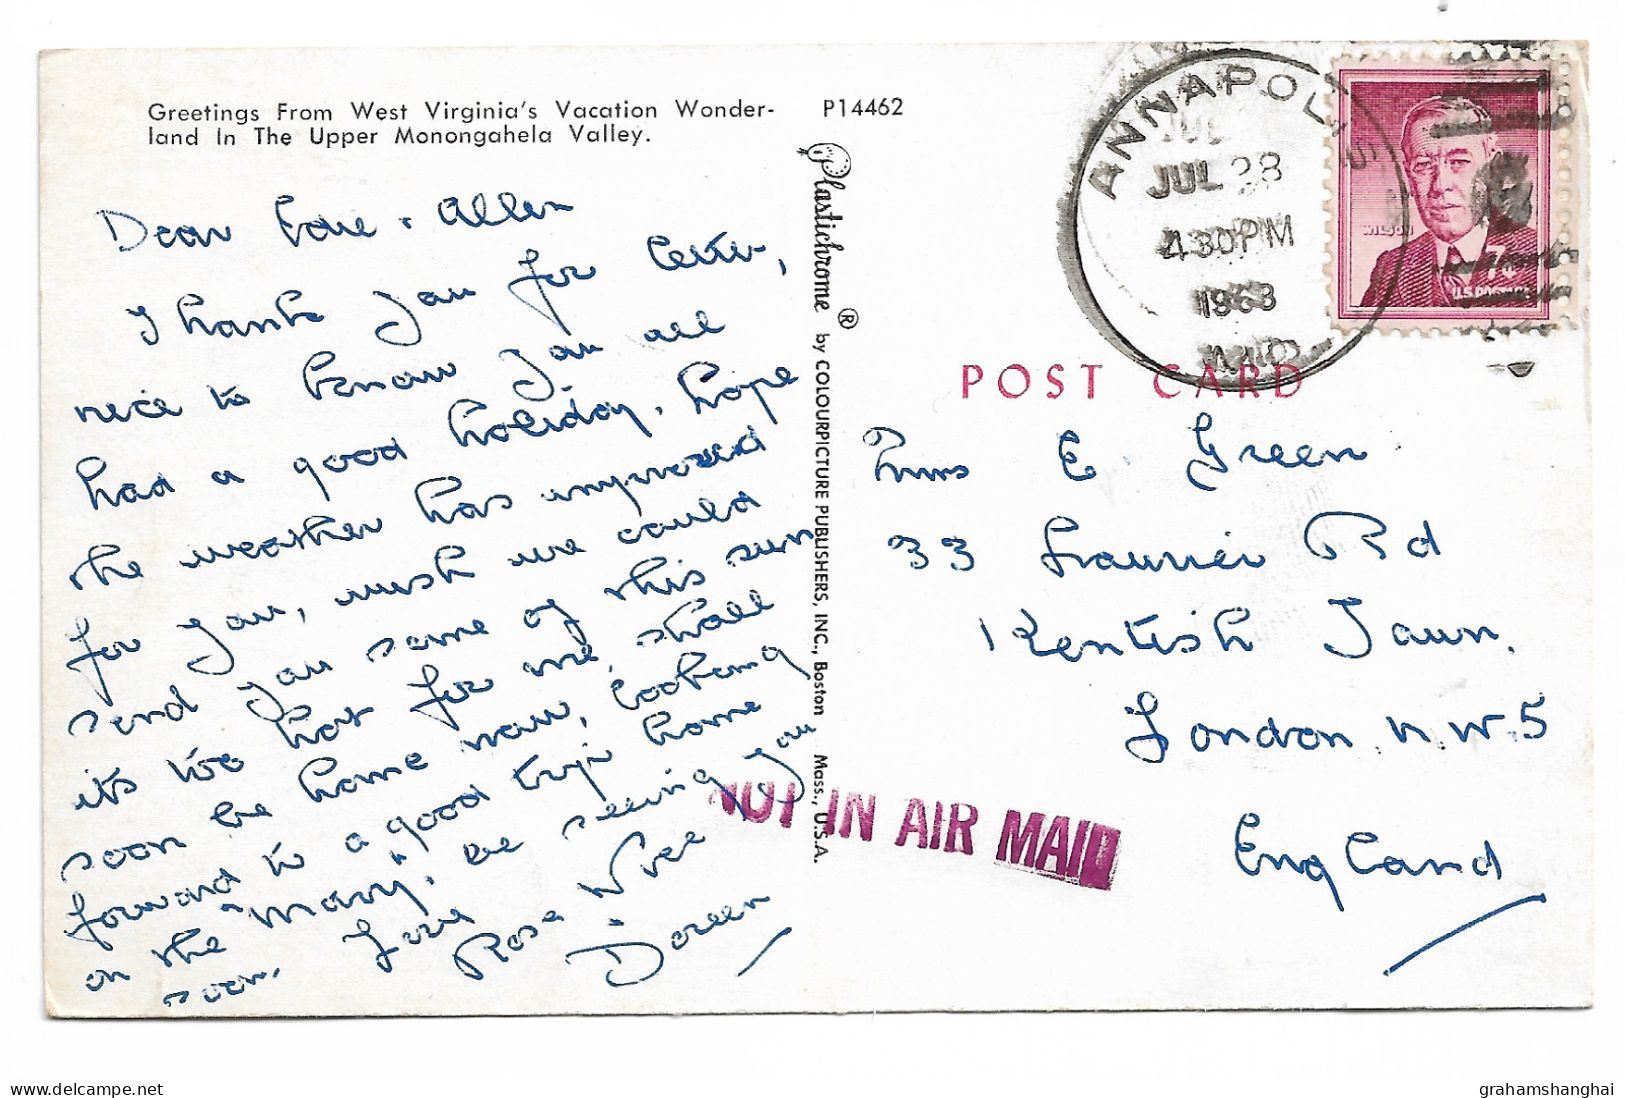 Greetings From West Virginia's Vacation Wonder-
land In The Upper Monongahela Valley.
P14462
Dear & Allen
Thanks you for letter,
nice to know you all
had a good holiday, hope
the weather has improved
for you, wish we could
send you some of this sun
its too hot for me, shall
soon be home now, looking
forward to a good trip home
on the "Mary", be seeing you
soon. Love
Rose
Doreen
Plastichrome ® by COLOURPICTURE PUBLISHERS, INC., Boston Mass., U.S.A.
ANNAPOLIS
JUL 28
430PM
1963
WILSON
7¢
U.S. POSTAGE
POST CARD
Mrs E. Green
33 Laurier Rd
Kentish Town.
London. N.W.5
England
NOT IN AIR MAIL
grahamshanghai